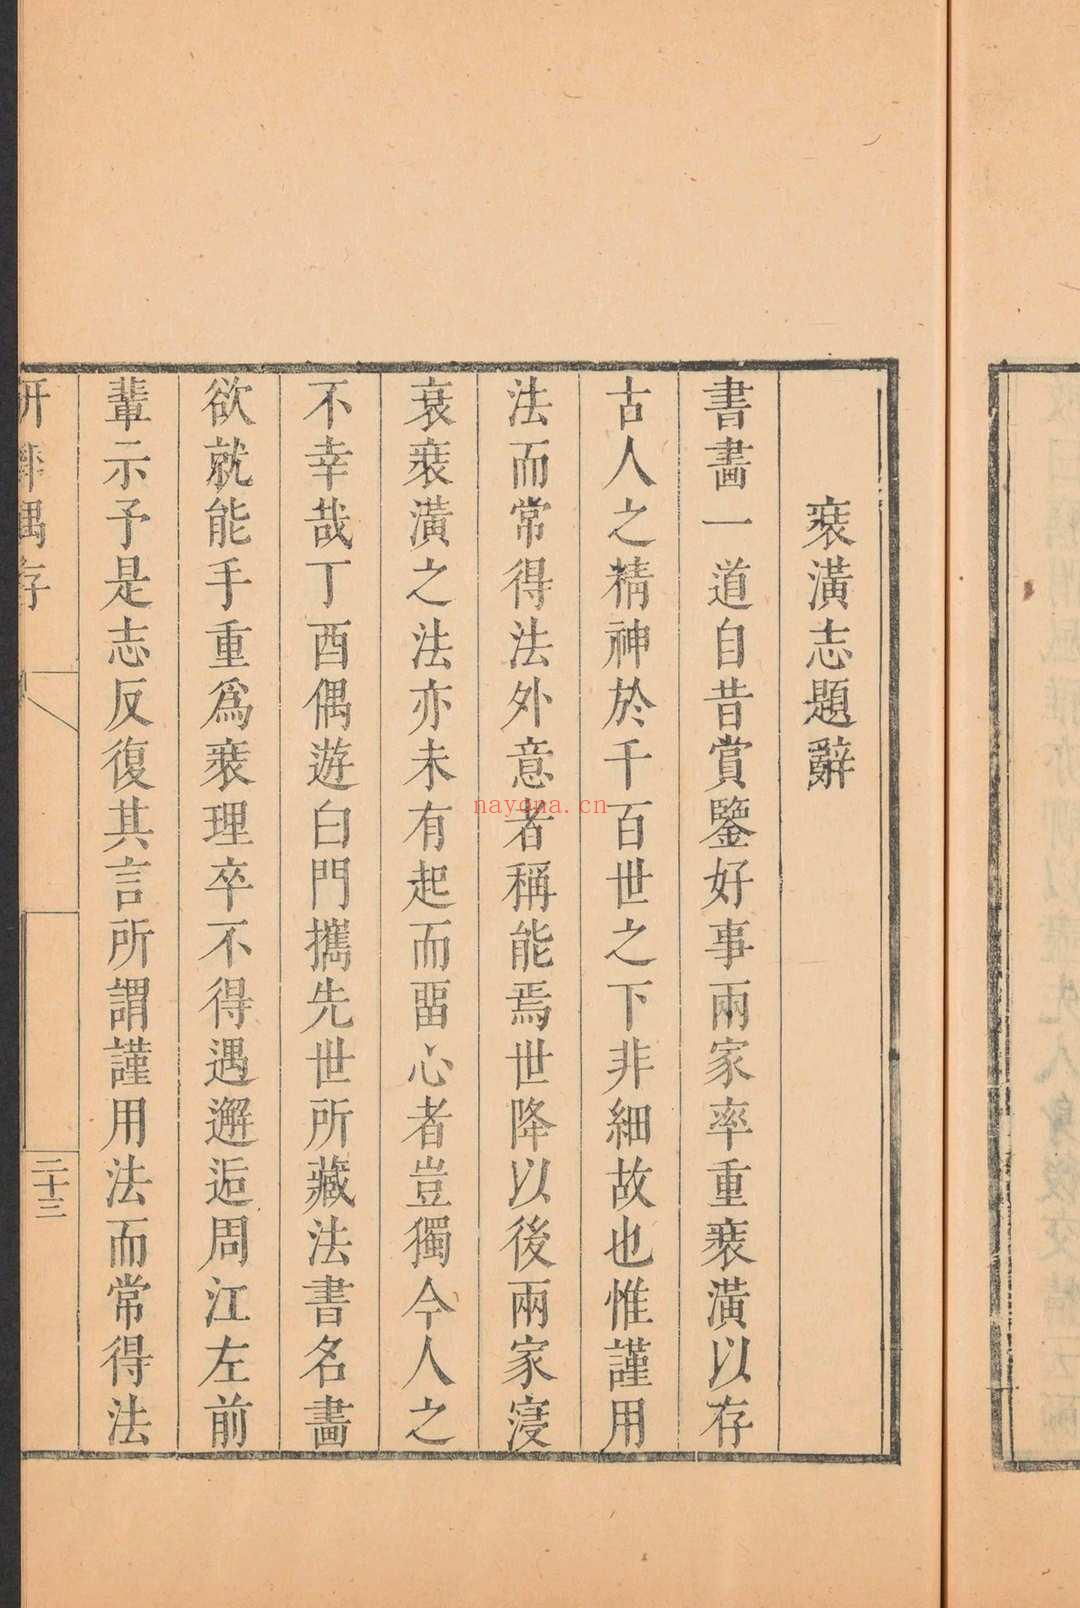 裱潢志題辭
書畫一道自昔賞鑒好事兩家率重裱潢以存
古人之精神於千百世之下非細故也惟謹用
法而常得法外意者稱能焉世降以後兩家寖
衰裱潢之法亦未有起而畱心者豈獨今人之
不幸哉丁酉偶遊白門攜先世所藏法書名畫
欲就能手重爲裱理卒不得遇邂逅周江左前
輩示予是志反復其言所謂謹用法而常得法
偶存
二十三
nayona.cn